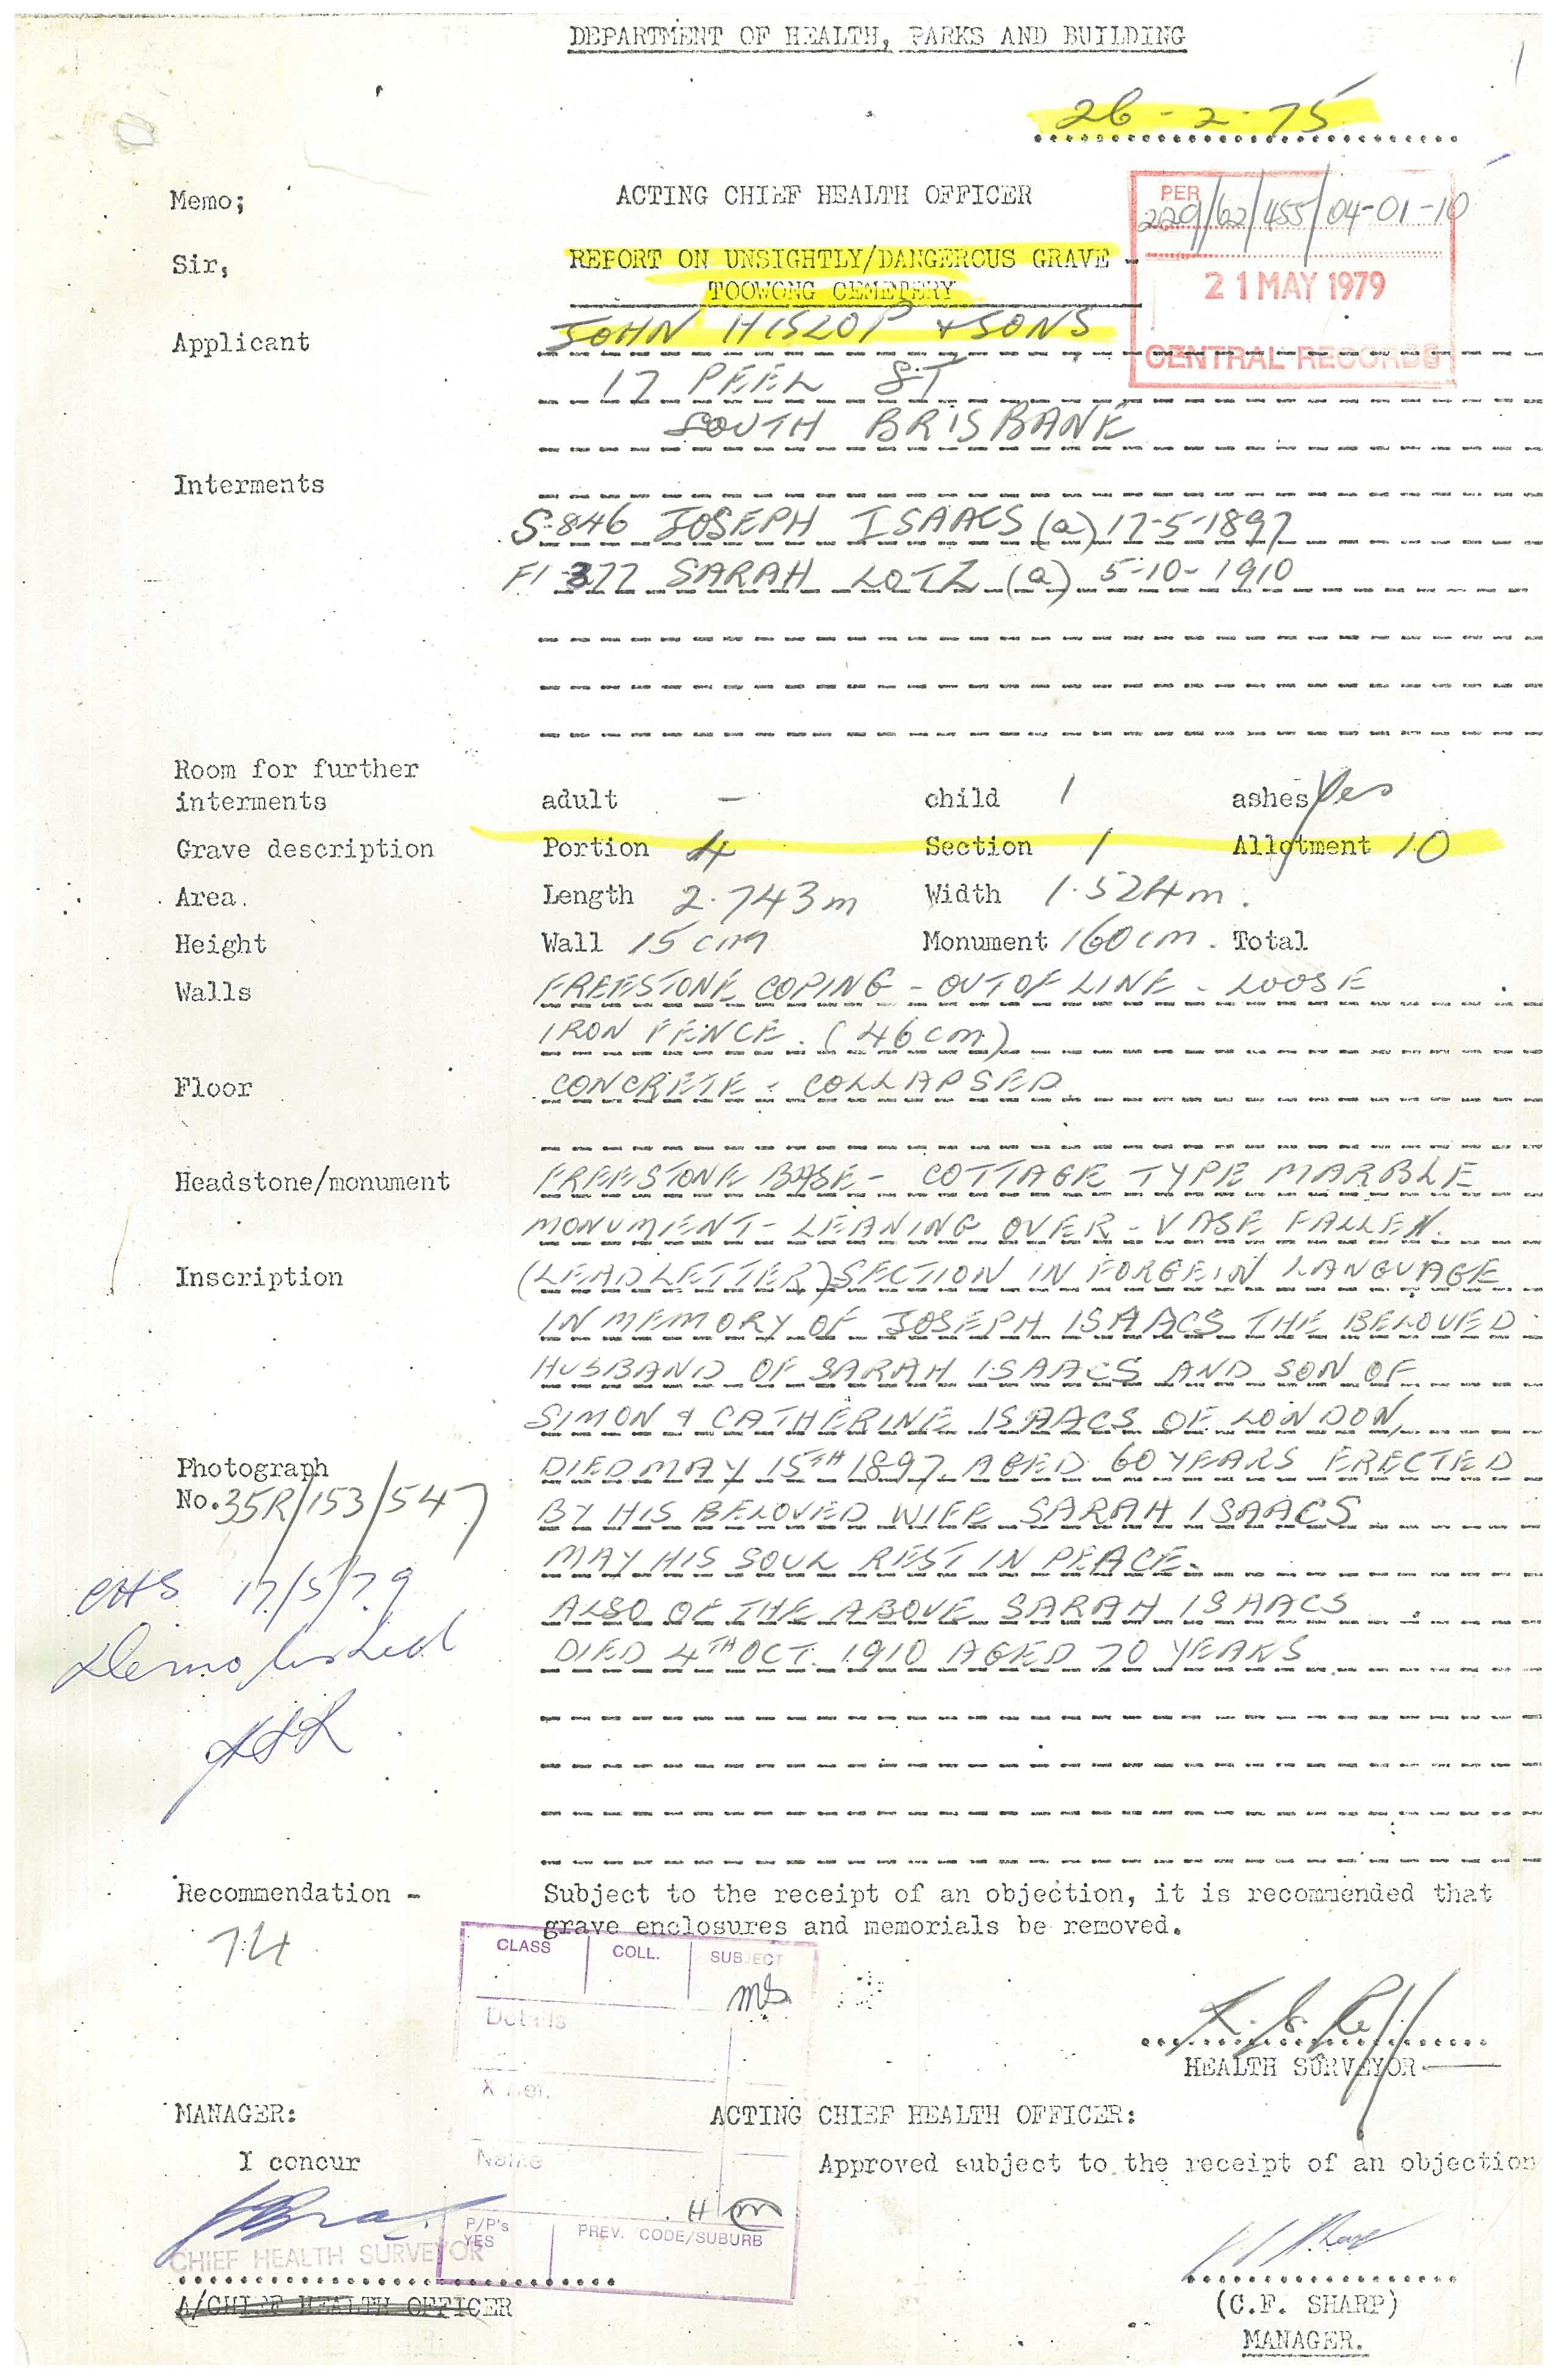 DEPARTMENT OF HEALTH, PARKS AND BUILDING
26-2-75
Memo;
ACTING CHIEF HEALTH OFFICER
PER
220/62/455/04-01-10
Sir,
REPORT ON UNSIGHTLY/DANGEROUS GRAVE -
TOOWONG CEMETERY
21 MAY 1979
CENTRAL RECORDS
Applicant
JOHN HISLOP & SONS
17 PEEL ST
SOUTH BRISBANE
Interments
S-846 JOSEPH ISAACS (a) 17-5-1897
F1 377 SARAH LOTZ (a) 5-10-1910
Room for further
interments adult - child 1 ashes Yes
Grave description Portion 4 Section 1 Allotment 10
Area. Length 2.743m Width 1.524m.
Height Wall 15cm Monument 160cm. Total
Walls FREESTONE COPING - OUT OF LINE - LOOSE
IRON FENCE. (46cm)
Floor CONCRETE - COLLAPSED
Headstone/monument FREESTONE BASE - COTTAGE TYPE MARBLE
MONUMENT - LEANING OVER - VASE FALLEN.
Inscription (LEAD LETTER) SECTION IN FORGEIN LANGUAGE
IN MEMORY OF JOSEPH ISAACS THE BELOVED
HUSBAND OF SARAH ISAACS AND SON OF
SIMON & CATHERINE ISAACS OF LONDON,
DIED MAY 15TH 1897 AGED 60 YEARS ERECTED
BY HIS BELOVED WIFE SARAH ISAACS
MAY HIS SOUL REST IN PEACE.
ALSO OF THE ABOVE SARAH ISAACS
DIED 4TH OCT. 1910 AGED 70 YEARS
Photograph
No. 35R/153/547
CHS 17/5/79
Demolished
Recommendation - Subject to the receipt of an objection, it is recommended that
grave enclosures and memorials be removed.
74
CLASS COLL. SUBJECT
MS
Details
X Ref.
HEALTH SURVEYOR
MANAGER:
ACTING CHIEF HEALTH OFFICER:
I concur
Name
Approved subject to the receipt of an objection
H m
P/P's
YES
PREV. CODE/SUBURB
CHIEF HEALTH SURVEYOR
A/CHIEF HEALTH OFFICER
(C.F. SHARP)
MANAGER.